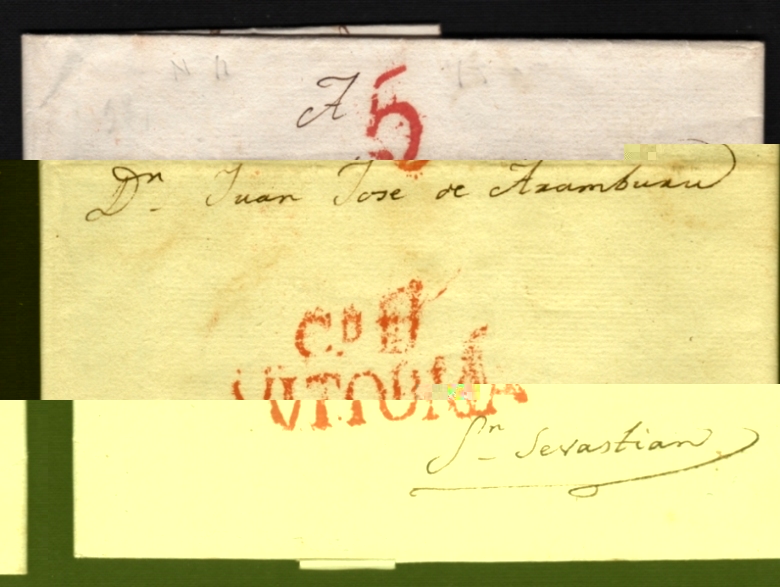 A 5
Dn. Juan Jose de Aramburu
VITORIA
Sn. Sevastian